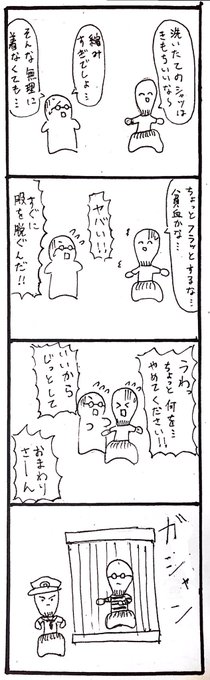 洗いたてのシャツは
きもちいいなら
縮み
すぎでしょ…
そんな無理に
着なくても…
ちょっとフラッとするな…
貧血かな…
ヤバい!!
すぐに
服を脱ぐんだ!!
うわっ
ちょっと何を…
やめてください!!
いいから
じっとして
おまわり
さーん
ガシャン